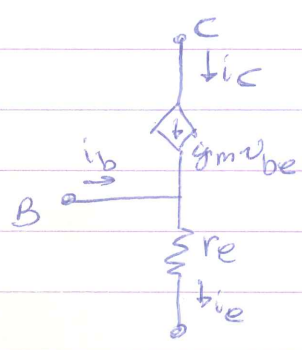 C
↓ic
gmvbe
ib
→
B
re
↓ie